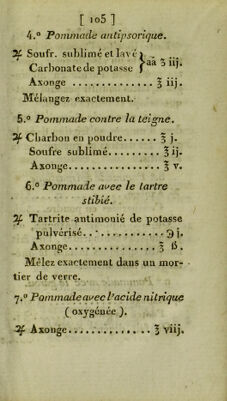 [ 105 ]
4.° Pommade antipsorique.
♃ Soufr. sublimé et lavé } aā ʒ iij.
Carbonate de potasse
Axonge .............. ℥ iij.
Mélangez exactement.
5.° Pommade contre la teigne.
♃ Charbon en poudre...... ℥ j.
Soufre sublimé......... ℥ ij.
Axonge.............. ℥ v.
6.° Pommade avec le tartre
stibié.
♃ Tartrite antimonié de potasse
pulvérisé............ ℈ j.
Axonge.............. ℥ ß.
Mêlez exactement dans un mor-
tier de verre.
7.° Pommade avec l'acide nitrique
( oxygénée ).
♃ Axonge.............. ℥ viij.